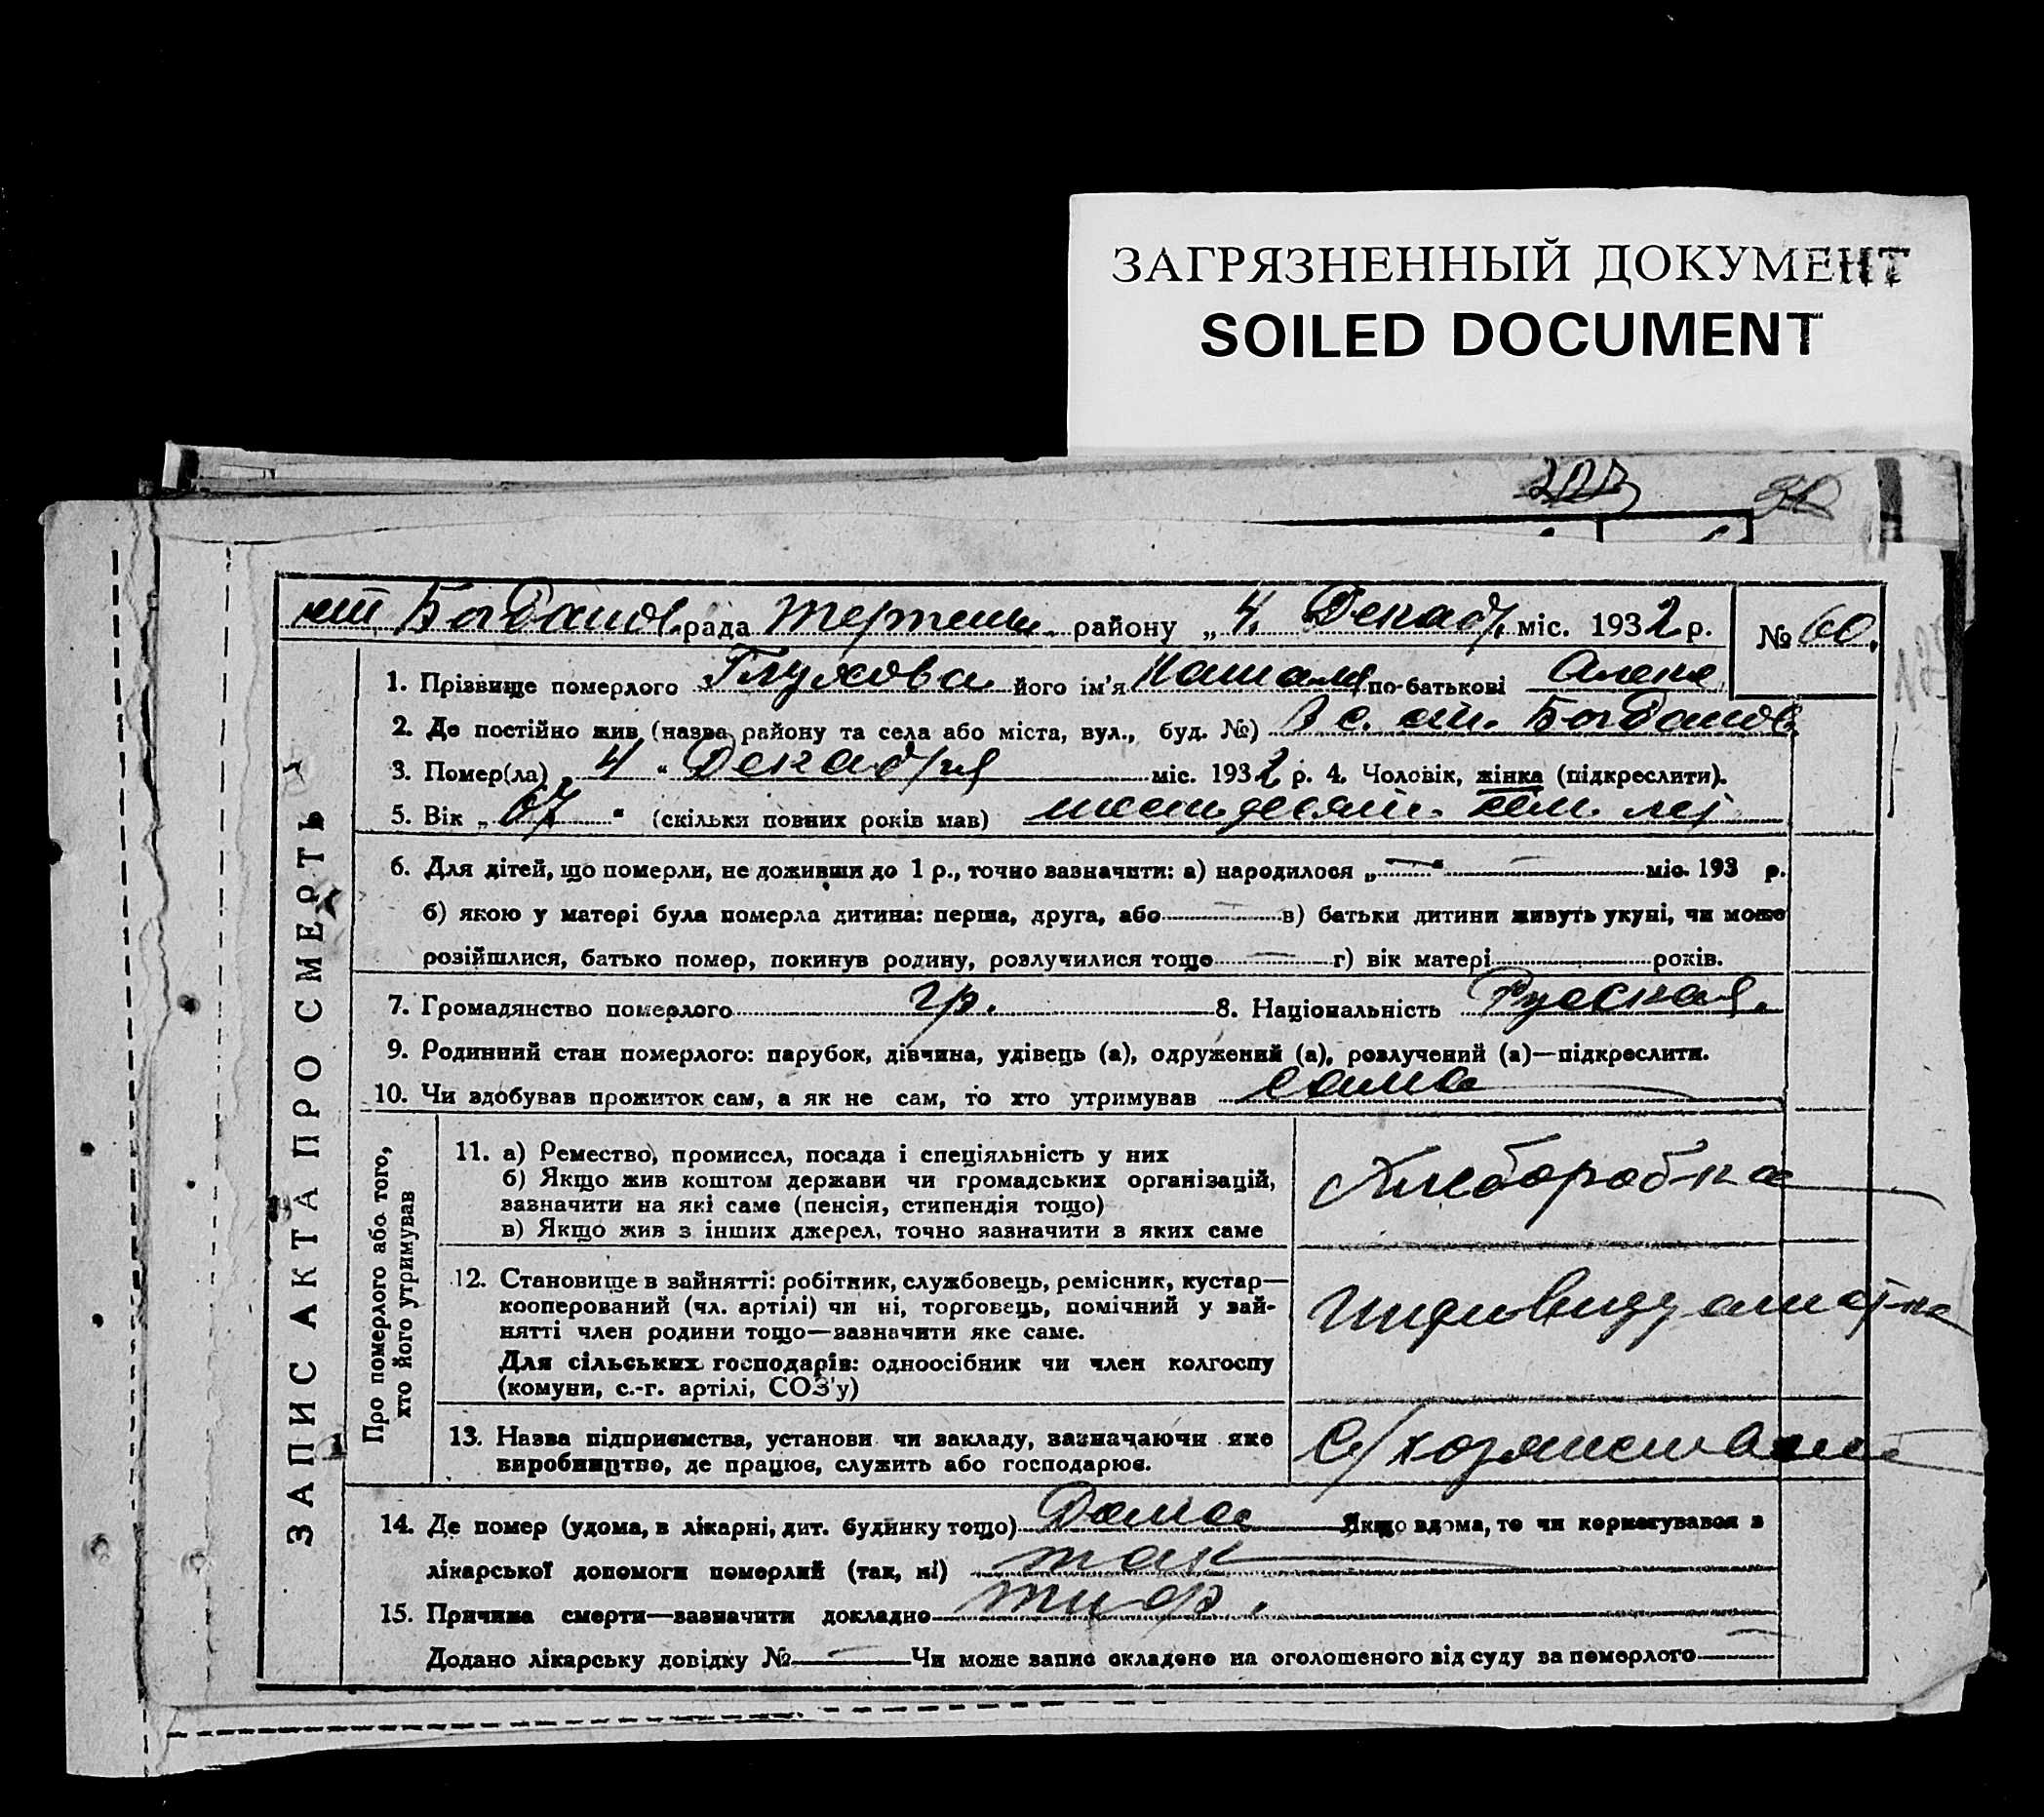 ЗАГРЯЗНЕННЫЙ ДОКУМЕНТ
SOILED DOCUMENT
ст Богданов. рада Терпень. району „4. Декабр. міс. 1932 р. № 60.
1. Прізвище померлого Глухова його ім'я Наталя по-батькові Алекс
2. Де постійно жив (назва району та села або міста, вул., буд. №) В с. ст. Богданов.
3. Помер(ла) „ 4 “ Декабря міс. 1932 р. 4. Чоловік, жінка (підкреслити).
5. Вік „ 67 “ (скільки повних років мав) шестьдесят. сем. лет
6. Для дітей, що померли, не доживши до 1 р., точно зазначити: а) народилося „ — “ — міс. 193 р.
б) якою у матері була померла дитина: перша, друга, або — в) батьки дитини живуть укупі, чи може
розійшлися, батько помер, покинув родину, розлучилися тощо — г) вік матері років.
7. Громадянство померлого гр. 8. Національність Русская.
9. Родинний стан померлого: парубок, дівчина, удівець (а), одружений (а), розлучений (а)—підкреслити.
10. Чи здобував прожиток сам, а як не сам, то хто утримував сама
ЗАПИС АКТА ПРО СМЕРТЬ
Про померлого або того,
хто його утримував
11. а) Ремество, промисел, посада і спеціяльність у них
б) Якщо жив коштом держави чи громадських організацій,
зазначити на які саме (пенсія, стипендія тощо)
в) Якщо жив з інших джерел, точно зазначити з яких саме
Хлеборобка
12. Становище в зайнятті: робітник, службовець, ремісник, кустар—
кооперований (чл. артілі) чи ні, торговець, помічний у зай-
нятті член родини тощо—зазначити яке саме.
Для сільських господарів: одноосібник чи член колгоспу
(комуни, с.-г. артілі, СОЗ'у)
Индивидуалистка
13. Назва підприємства, установи чи закладу, зазначаючи яке
виробництво, де працює, служить або господарює.
С/хозяйство
14. Де помер (удома, в лікарні, дит. будинку тощо) Дома Якщо вдома, то чи користувався з
лікарської допомоги померлий (так, ні) так
15. Причина смерти—зазначити докладно тиф.
Додано лікарську довідку № — Чи може запис складено на оголошеного від суду за померлого —